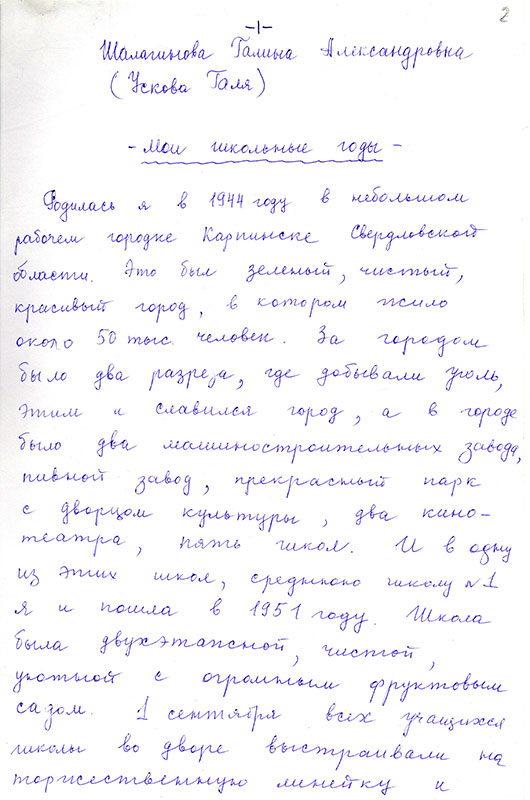 2
-1-
Шалагинова Галина Александровна
(Ускова Галя)
- Мои школьные годы -
Родилась я в 1944 году в небольшом
рабочем городке Карпинске Свердловской
области. Это был зеленый, чистый,
красивый город, в котором жило
около 50 тыс. человек. За городом
было два разреза, где добывали уголь,
этим и славился город, а в городе
было два машиностроительных завода,
пивной завод, прекрасный парк
с дворцом культуры, два кино-
театра, пять школ. И в одну
из этих школ, среднюю школу №1
я и пошла в 1951 году. Школа
была двухэтажной, чистой,
уютной с огромным фруктовым
садом. 1 сентября всех учащихся
школы во дворе выстраивали на
торжественную линейку и